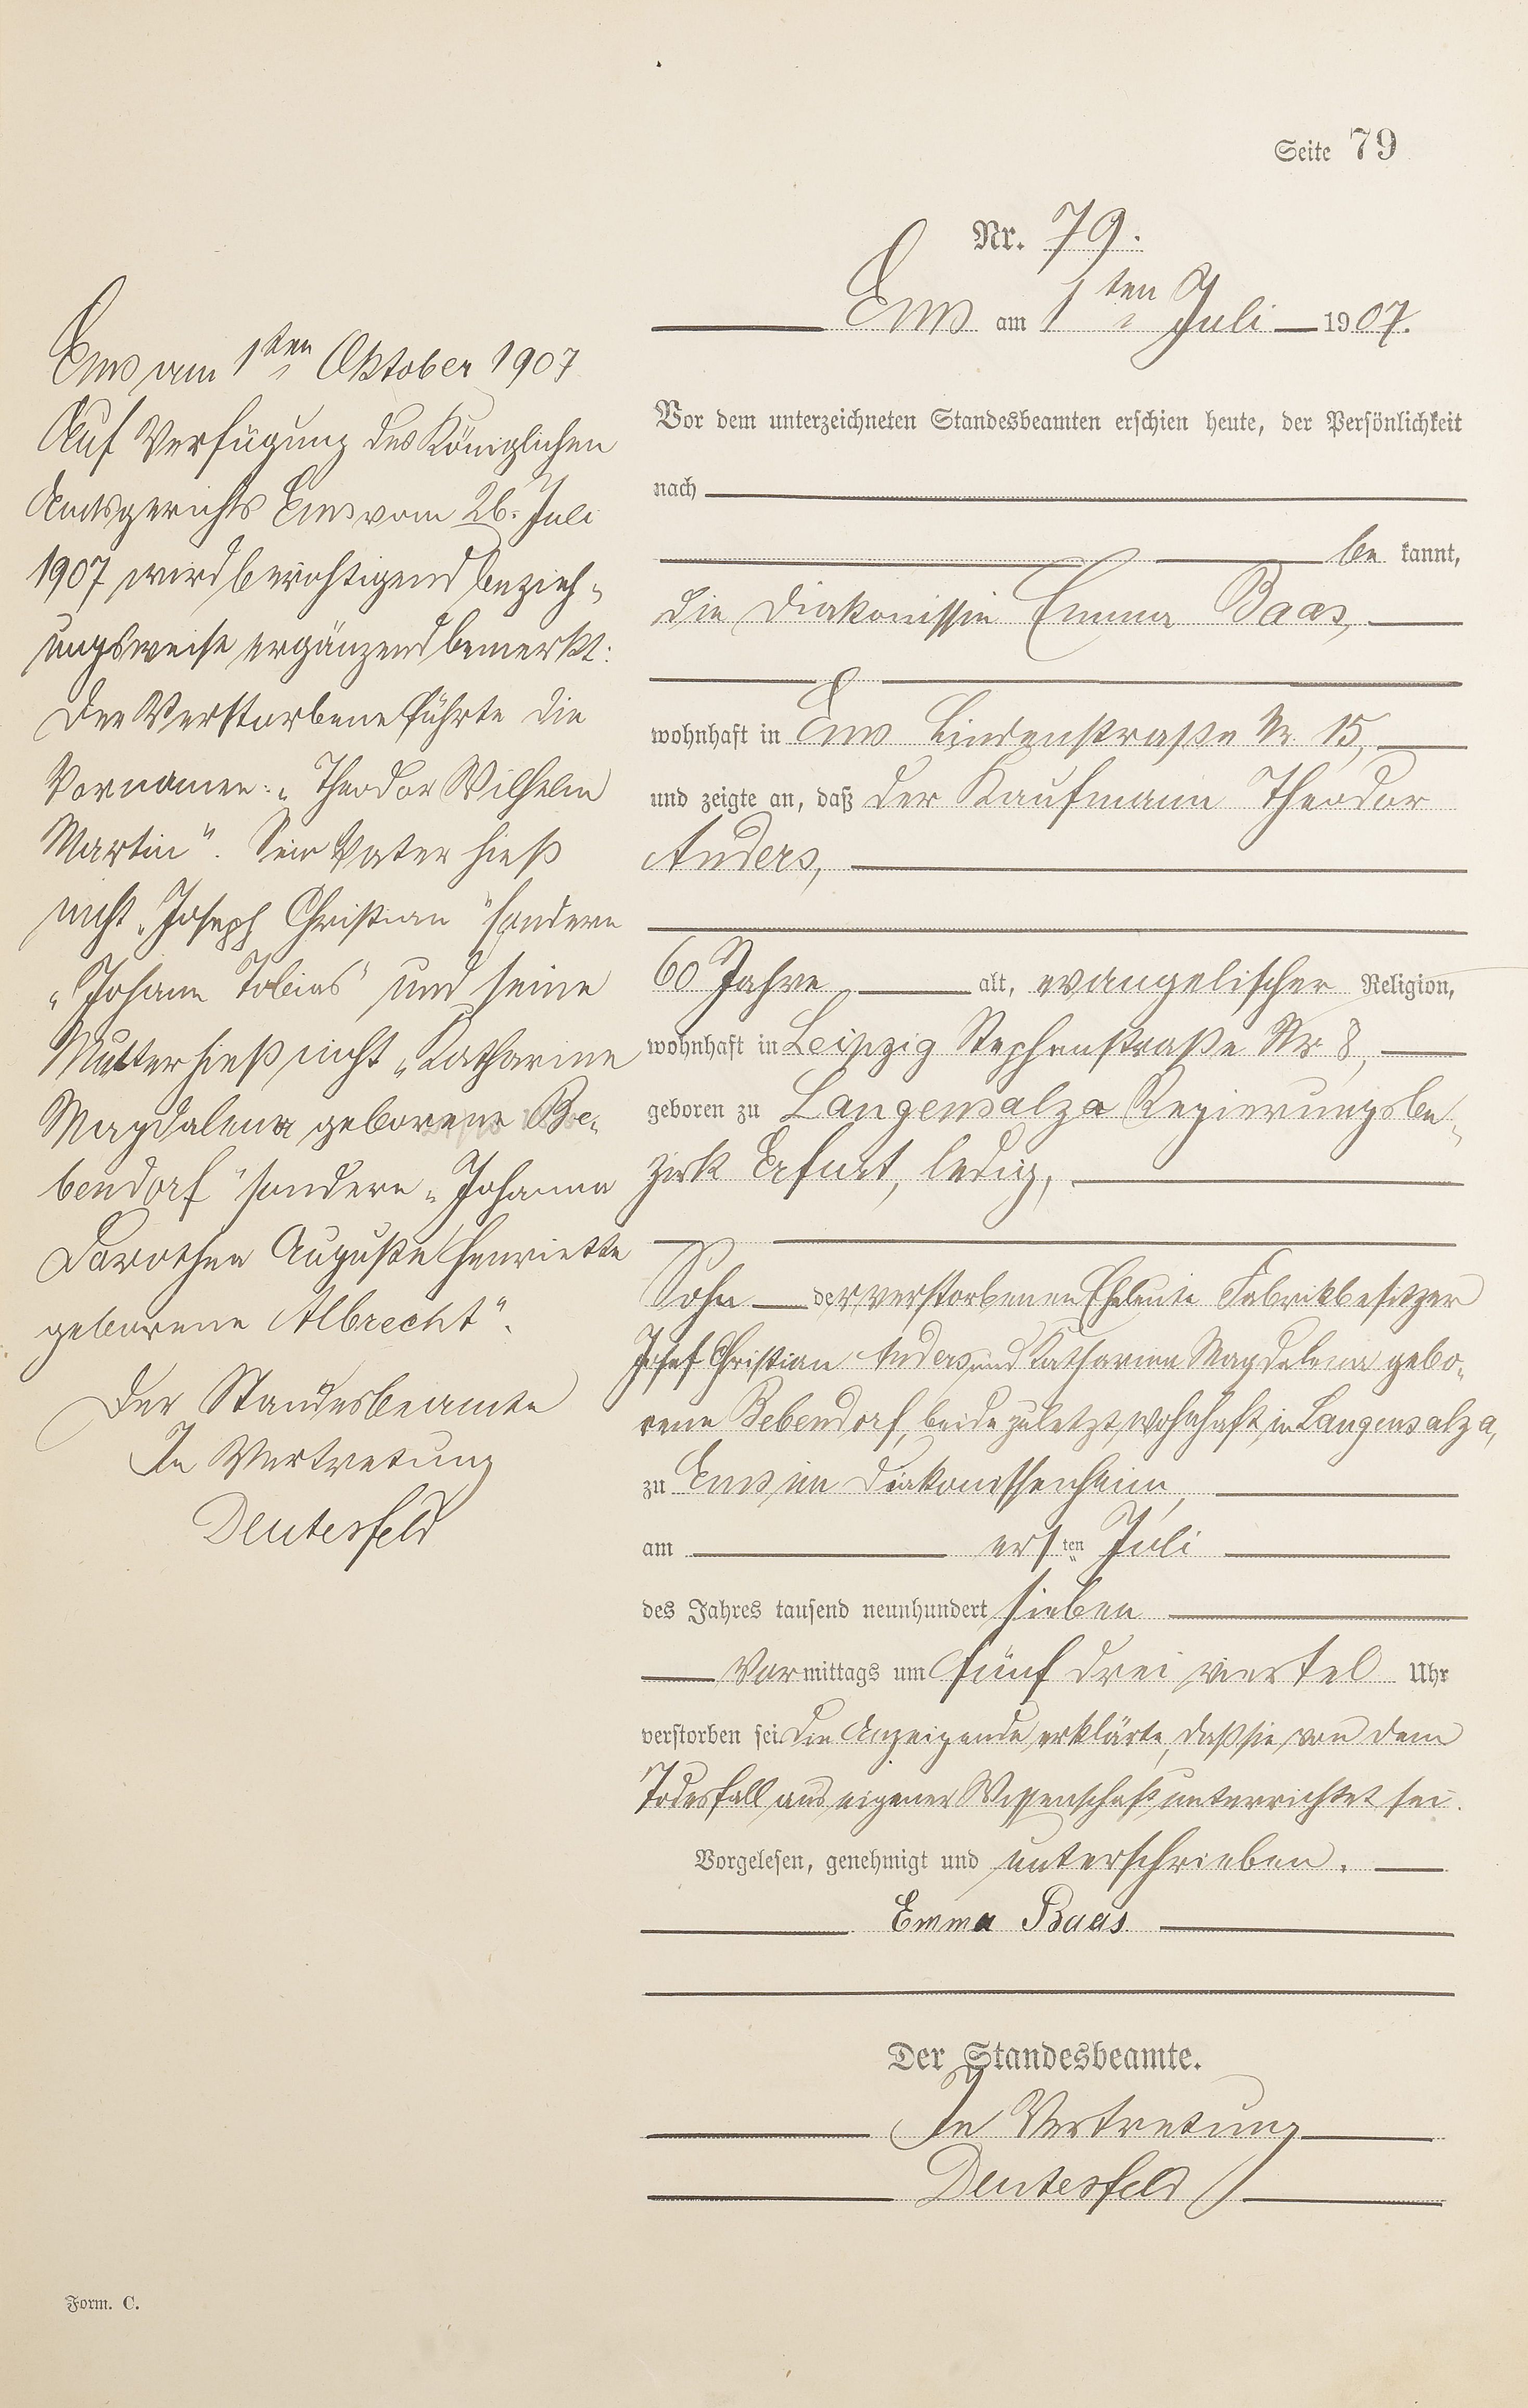 Seite 79
Nr. 79.
Ems am 1ten Juli 1907.
Vor dem unterzeichneten Standesbeamten erschien heute, der Persönlichkeit
nach
be kannt,
die Diakonissin Emma Baas,
wohnhaft in Ems Lindenstraße Nr. 15,
und zeigte an, daß der Kaufmann Theodor
Anders,
60 Jahre alt, evangelischer Religion,
wohnhaft in Leipzig Stephenstraße Nr 8,
geboren zu Langensalza Regierungsbe-
zirk Erfurt, ledig,
Sohn der verstorbenen Eheleute Fabrikbesitzer
Josef Christian Anders und Katharina Magdalena gebo-
rene Bebendorf, beide zuletzt wohnhaft in Langensalza,
zu Ems im Diakonissenheim,
am ersten Juli
des Jahres tausend neunhundert sieben
Vormittags um fünf drei viertel Uhr
verstorben sei. Die Anzeigende erklärte, daß sie von dem
Todesfall aus eigener Wissenschaft unterrichtet sei.
Vorgelesen, genehmigt und unterschrieben.
Emma Baas
Der Standesbeamte.
In Vertretung
Deutesfeld
Ems am 1ten Oktober 1907
Auf Verfügung des Königlichen
Amtsgerichts Ems vom 26. Juli
1907 wird berichtigend bezieh-
ungsweise ergänzend bemerkt:
Der Verstorbene führte die
Vornamen: „Theodor Wilhelm
Martin". Sein Vater hieß
nicht „Joseph Christian" sondern
„Johann Tobias" und seine
Mutter hieß nicht „Katharine
Magdalena geborene Be-
bendorf" sondern „Johanna
Dorothea Auguste Henriette
geborene Albrecht".
Der Standesbeamte
In Vertretung
Deutesfeld
Form. C.